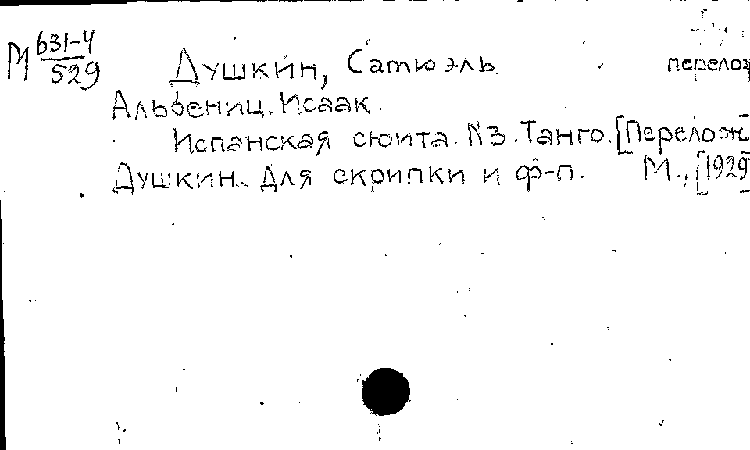 М 631-4
529
Душкин, Сатюэль
перелоз
Альбениц. Исаак.
Испанская сюита. №3. Танго. [Перелож
Душкин. Для скрипки и ф-п. М., [1929